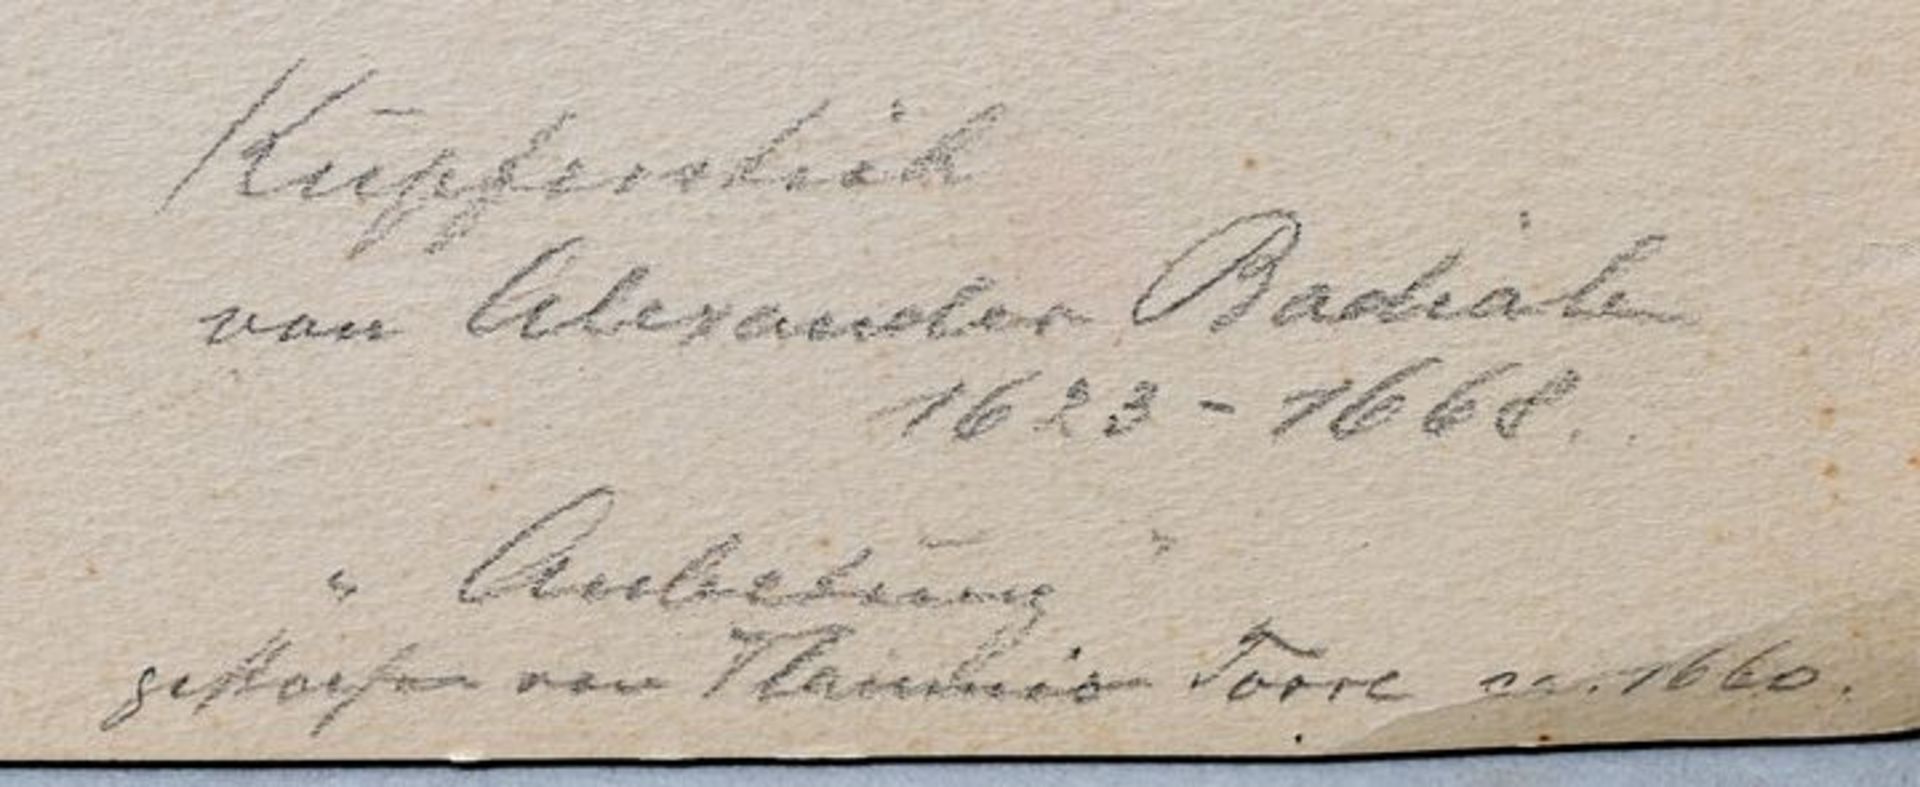 Kupferstich
von Alexander Badiale
1623 - 1668.
" Anbetung "
gestochen von Flaminio Torre ca. 1660.